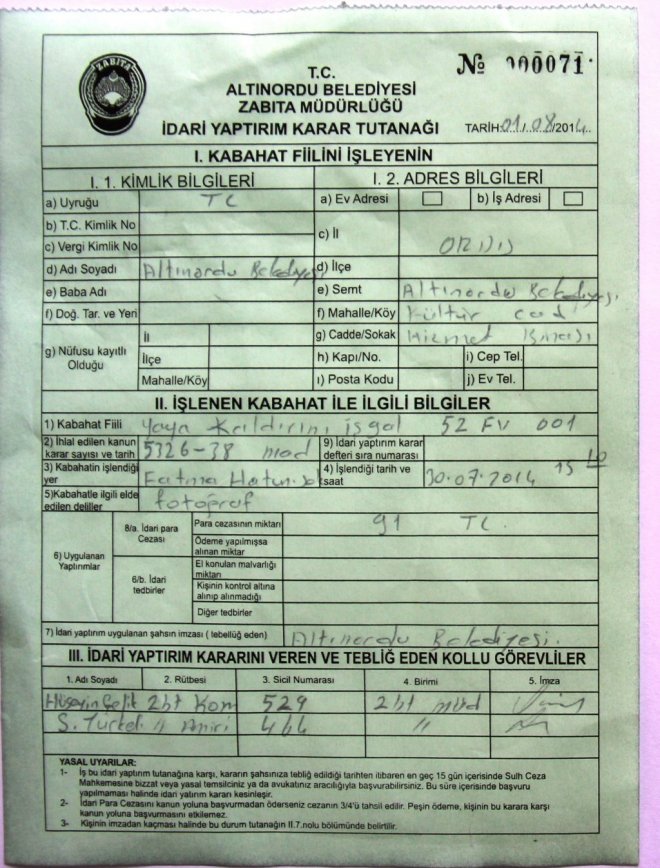 ZABITA
T.C.
ALTINORDU BELEDİYESİ
ZABITA MÜDÜRLÜĞÜ
İDARİ YAPTIRIM KARAR TUTANAĞI
№ 000071
TARİH:01/08/2014
I. KABAHAT FİİLİNİ İŞLEYENİN
I. 1. KİMLİK BİLGİLERİ I. 2. ADRES BİLGİLERİ
a) Uyruğu TC a) Ev Adresi b) İş Adresi
b) T.C. Kimlik No
c) Vergi Kimlik No c) İl ORDU
d) Adı Soyadı Altınordu Belediyesi d) İlçe
e) Baba Adı e) Semt Altınordu Belediyesi
f) Doğ. Tar. ve Yeri f) Mahalle/Köy Kültür cad
g) Nüfusu kayıtlı Olduğu İl g) Cadde/Sokak Hizmet Binası
İlçe h) Kapı/No. i) Cep Tel.
Mahalle/Köy ı) Posta Kodu j) Ev Tel.
II. İŞLENEN KABAHAT İLE İLGİLİ BİLGİLER
1) Kabahat Fiili Yaya Kaldırım işgal 52 FV 001
2) İhlal edilen kanun karar sayısı ve tarih 5326-38 mad 9) İdari yaptırım karar defteri sıra numarası
3) Kabahatin işlendiği yer Fatma Hatun 4) İşlendiği tarih ve saat 30.07.2014 15 10
5)Kabahatle ilgili elde edilen deliller fotoğraf
6) Uygulanan Yaptırımlar 8/a. İdari para Cezası Para cezasının miktarı 91 TL.
Ödeme yapılmışsa alınan miktar
6/b. İdari tedbirler El konulan malvarlığı miktarı
Kişinin kontrol altına alınıp alınmadığı
Diğer tedbirler
7) İdari yaptırım uygulanan şahsın imzası ( tebellüğ eden) Altınordu Belediyesi.
III. İDARİ YAPTIRIM KARARINI VEREN VE TEBLİĞ EDEN KOLLU GÖREVLİLER
1. Adı Soyadı 2. Rütbesi 3. Sicil Numarası 4. Birimi 5. İmza
Hüseyin Çelik Zbt Kom 529 Zbt müd
S. Türkeli " Amiri 444 "
YASAL UYARILAR:
1- İş bu idari yaptırım tutanağına karşı, kararın şahsınıza tebliğ edildiği tarihten itibaren en geç 15 gün içerisinde Sulh Ceza
Mahkemesine bizzat veya yasal temsilciniz ya da avukatınız aracılığıyla başvurabilirsiniz. Bu süre içerisinde başvuru
yapılmaması halinde idari yatırım kararı kesinleşir.
2- İdari Para Cezasını kanun yoluna başvurmadan öderseniz cezanın 3/4'ü tahsil edilir. Peşin ödeme, kişinin bu karara karşı
kanun yoluna başvurmasını etkilemez.
3- Kişinin imzadan kaçması halinde bu durum tutanağın II.7.nolu bölümünde belirtilir.